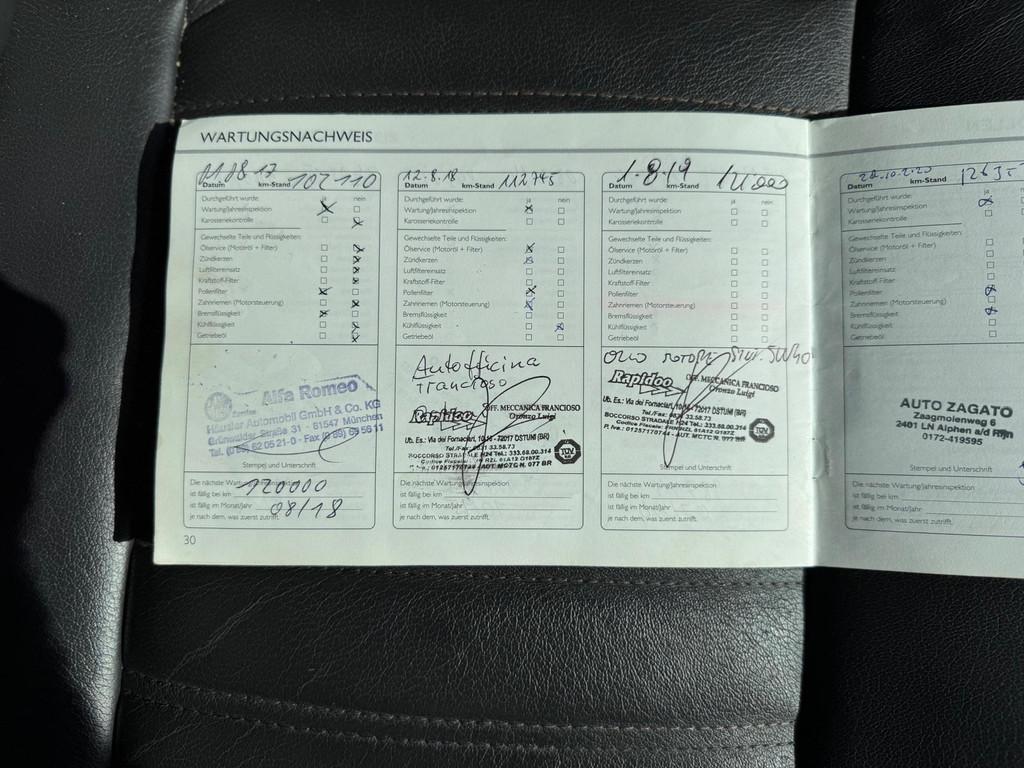 WARTUNGSNACHWEIS
01.08.17
Datum km-Stand 102 110
Durchgeführt wurde: ja nein
Wartung/Jahresinspektion
Karosseriekontrolle
Gewechselte Teile und Flüssigkeiten:
Ölservice (Motoröl + Filter)
Zündkerzen
Luftfiltereinsatz
Kraftstoff-Filter
Pollenfilter
Zahnriemen (Motorsteuerung)
Bremsflüssigkeit
Kühlflüssigkeit
Getriebeöl
Alfa Romeo
Häusler Automobil GmbH & Co. KG
Grünwalder Straße 31 - 81547 München
Stempel und Unterschrift
Die nächste Wartung/Jahresinspektion
ist fällig bei km 120000
ist fällig im Monat/Jahr 08/18
je nach dem, was zuerst zutrifft.
30
12.8.18
Datum km-Stand 112745
Durchgeführt wurde: ja nein
Wartung/Jahresinspektion
Karosseriekontrolle
Gewechselte Teile und Flüssigkeiten:
Ölservice (Motoröl + Filter)
Zündkerzen
Luftfiltereinsatz
Kraftstoff-Filter
Pollenfilter
Zahnriemen (Motorsteuerung)
Bremsflüssigkeit
Kühlflüssigkeit
Getriebeöl
Autofficina
Francioso
Rapidoo OFF. MECCANICA FRANCIOSO
Oronzo Luigi
Ub. Es.: Via dei Fornaciari, 10/14 - 72017 OSTUNI (BR)
Tel./Fax: 0831.33.58.73
SOCCORSO STRADALE H24 Tel.: 333.68.00.314
TÜV
Die nächste Wartung/Jahresinspektion
ist fällig bei km
ist fällig im Monat/Jahr
je nach dem, was zuerst zutrifft.
1.8.19
Datum km-Stand
Durchgeführt wurde: ja nein
Wartung/Jahresinspektion
Karosseriekontrolle
Gewechselte Teile und Flüssigkeiten:
Ölservice (Motoröl + Filter)
Zündkerzen
Luftfiltereinsatz
Kraftstoff-Filter
Pollenfilter
Zahnriemen (Motorsteuerung)
Bremsflüssigkeit
Kühlflüssigkeit
Getriebeöl
OLIO MOTORE 5W40
Rapidoo OFF. MECCANICA FRANCIOSO
Oronzo Luigi
Ub. Es.: Via dei Fornaciari, 10/14 - 72017 OSTUNI (BR)
Tel./Fax: 0831.33.58.73
SOCCORSO STRADALE H24 Tel.: 333.68.00.314
TÜV
Stempel und Unterschrift
Die nächste Wartung/Jahresinspektion
ist fällig bei km
ist fällig im Monat/Jahr
je nach dem, was zuerst zutrifft.
Datum km-Stand
Durchgeführt wurde: ja
Wartung/Jahresinspektion
Karosseriekontrolle
Gewechselte Teile und Flüssigkeiten:
Ölservice (Motoröl + Filter)
Zündkerzen
Luftfiltereinsatz
Kraftstoff-Filter
Pollenfilter
Zahnriemen (Motorsteuerung)
Bremsflüssigkeit
Kühlflüssigkeit
Getriebeöl
AUTO ZAGATO
Zaagmolenweg 6
2401 LN Alphen a/d Rijn
0172-419595
Stempel und Unterschrift
Die nächste Wartung/Jahresinspektion
ist fällig bei km
ist fällig im Monat/Jahr
je nach dem, was zuerst zutrifft.